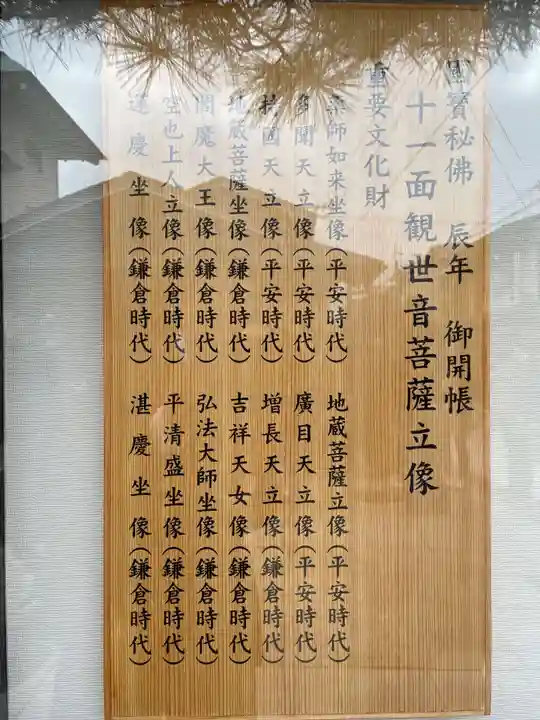 國寳秘佛 辰年 御開帳
十一面観世音菩薩立像
重要文化財
薬師如来坐像(平安時代) 地蔵菩薩立像(平安時代)
多聞天立像(平安時代) 廣目天立像(平安時代)
持國天立像(平安時代) 増長天立像(鎌倉時代)
地蔵菩薩坐像(鎌倉時代) 吉祥天女像(鎌倉時代)
閻魔大王像(鎌倉時代) 弘法大師坐像(鎌倉時代)
空也上人立像(鎌倉時代) 平清盛坐像(鎌倉時代)
運慶坐像(鎌倉時代) 湛慶坐像(鎌倉時代)